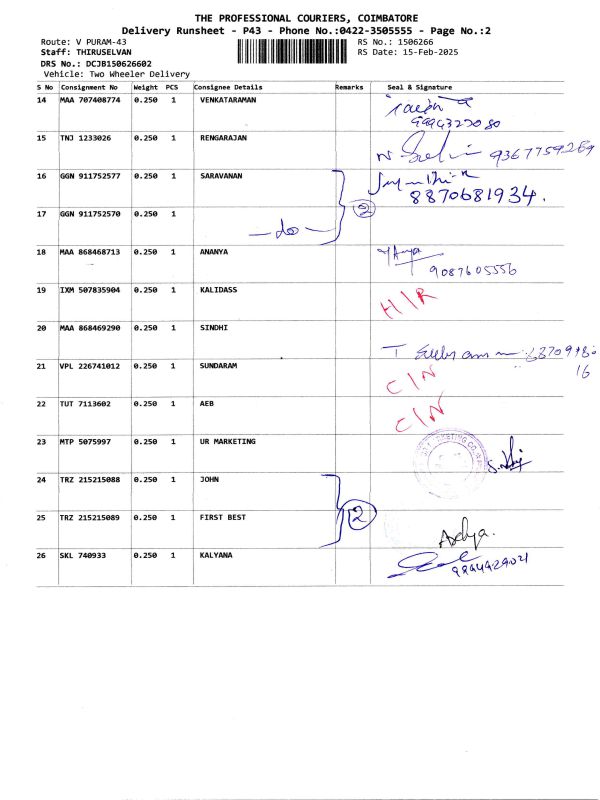 THE PROFESSIONAL COURIERS, COIMBATORE
Delivery Runsheet - P43 - Phone No.:0422-3505555 - Page No.:2
Route: V PURAM-43 RS No.: 1506266
Staff: THIRUSELVAN RS Date: 15-Feb-2025
DRS No.: DCJB150626602
Vehicle: Two Wheeler Delivery
S No Consignment No Weight PCS Consignee Details Remarks Seal & Signature
14 MAA 707408774 0.250 1 VENKATARAMAN
9994327080
15 TNJ 1233026 0.250 1 RENGARAJAN
9367759289
16 GGN 911752577 0.250 1 SARAVANAN
8870681934.
17 GGN 911752570 0.250 1 —do— 2
18 MAA 868468713 0.250 1 ANANYA
9087605556
19 IXM 507835904 0.250 1 KALIDASS H/R
20 MAA 868469290 0.250 1 SINDHI
21 VPL 226741012 0.250 1 SUNDARAM C/N
16
22 TUT 7113602 0.250 1 AEB C/N
23 MTP 5075997 0.250 1 UR MARKETING
24 TRZ 215215088 0.250 1 JOHN
25 TRZ 215215089 0.250 1 FIRST BEST 2
26 SKL 740933 0.250 1 KALYANA